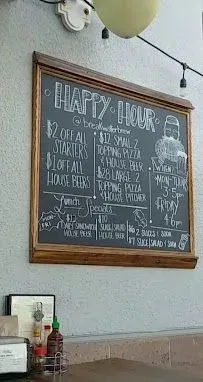 HAPPY HOUR
@ breakwaterbrew
$2 OFF ALL
STARTERS
$1 OFF ALL
HOUSE BEERS
$12 SMALL 2
TOPPING PIZZA
& HOUSE BEER
$28 LARGE 2
TOPPING PIZZA
& HOUSE PITCHER
WHEN?
MON-THURS
3-5pm
FRIDAY
4-6pm
Lunch Specials
$12
DAILY SANDWICH
HOUSE BEER
$10
SLICE/SALAD
HOUSE BEER
2 SLICES & SODA
SLICE/SALAD & SODA